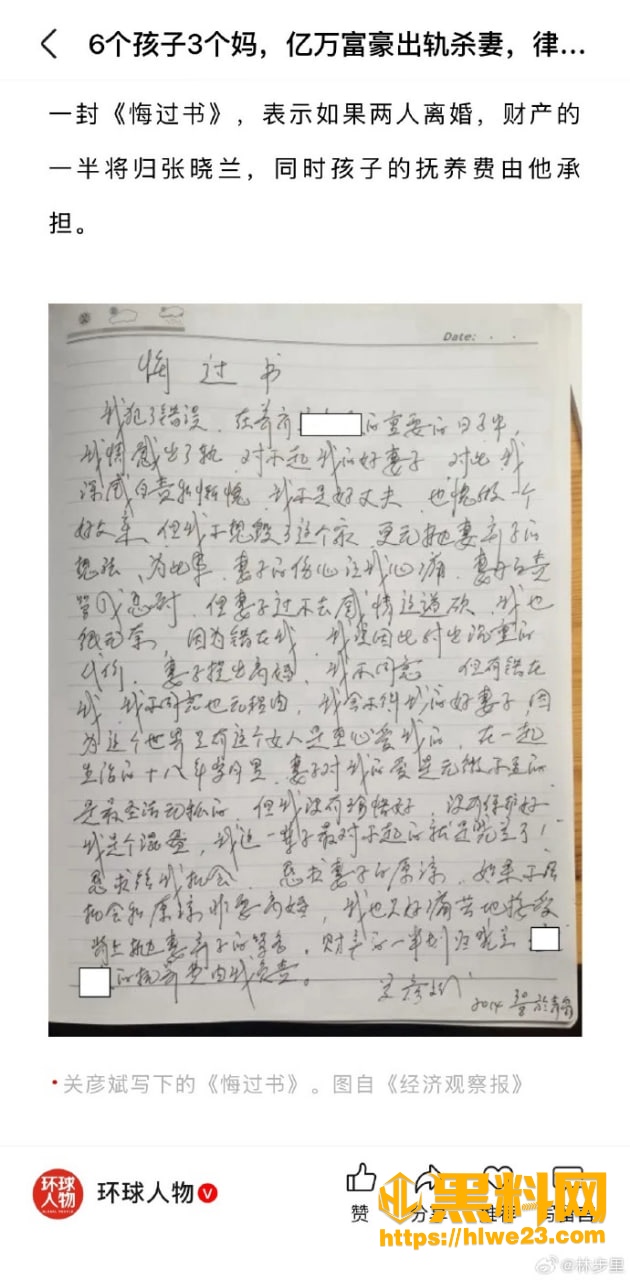 6个孩子3个妈，亿万富豪出轨杀妻，律...
一封《悔过书》，表示如果两人离婚，财产的
一半将归张晓兰，同时孩子的抚养费由他承
担。
Date:
悔过书
我犯了错误，在养育的重要的日子中，
我情感出了轨，对不起我的好妻子，对此我
深感自责和惭愧，我不是好丈夫，也愧做一个
好父亲，但我不想毁了这个家，更无抛妻弃子的
想法，为此事，妻子的伤心让我心痛，妻
，但妻子过不去感情这道砍，我也
很无奈，因为错在我，我没因此付出沉重的
代价，妻子提出离婚，我不同意，但有错在
我，我不同意也无理由，我舍不得我的好妻子，因
为这个世界里有这个女人是真心爱我的，在一起
生活的十八年岁月里，妻子对我的爱是无微不至的
是最圣洁无私的，但我没有珍惜好，没有保护好
我是个混蛋，我这一辈子最对不起的就是晓兰了！
恳求给我机会，恳求妻子的原谅，如果不给
机会和原谅非要离婚，我也只好痛苦地接受
背上抛妻弃子的罪名，财产的一半划归晓兰
的抚养费由我负责。
关彦斌
2014
•关彦斌写下的《悔过书》。图自《经济观察报》
环球人物
环球人物
赞
分享
推荐
写留言
黑料网
https://hlwe23.com
@林步里